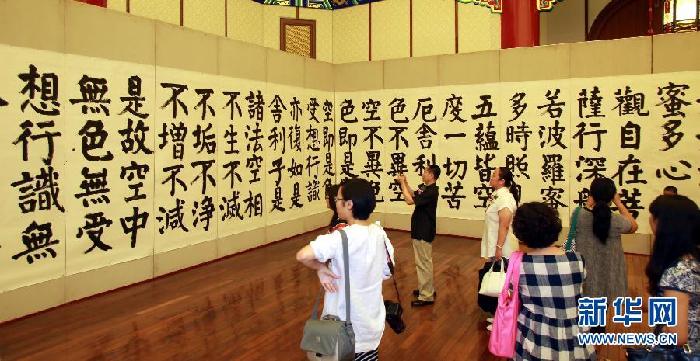 蜜多心
觀自在菩
薩行深般
若波羅蜜
多時照
五蘊皆空
度一切苦
厄舍利
色不異空
空不異
色即是
空即是
受想行識
亦復如是
舍利子是
諸法空相
不生不滅
不垢不净
不增不減
是故空中
無色無受
想行識無
新华网
WWW.NEWS.CN